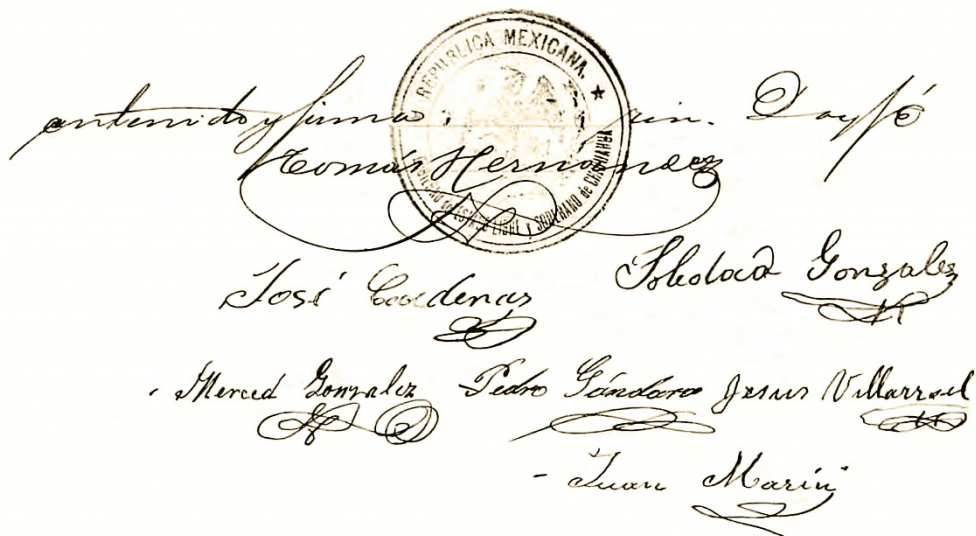 REPUBLICA MEXICANA.
ESTADO LIBRE Y SOBERANO de CHIHUAHUA
ontenido y firma Doy fé
Tomas Hernández
José Cardenas Soledad Gonzalez
Merced Gonzalez Pedro Gándara Jesus Villarreal
Juan Marín